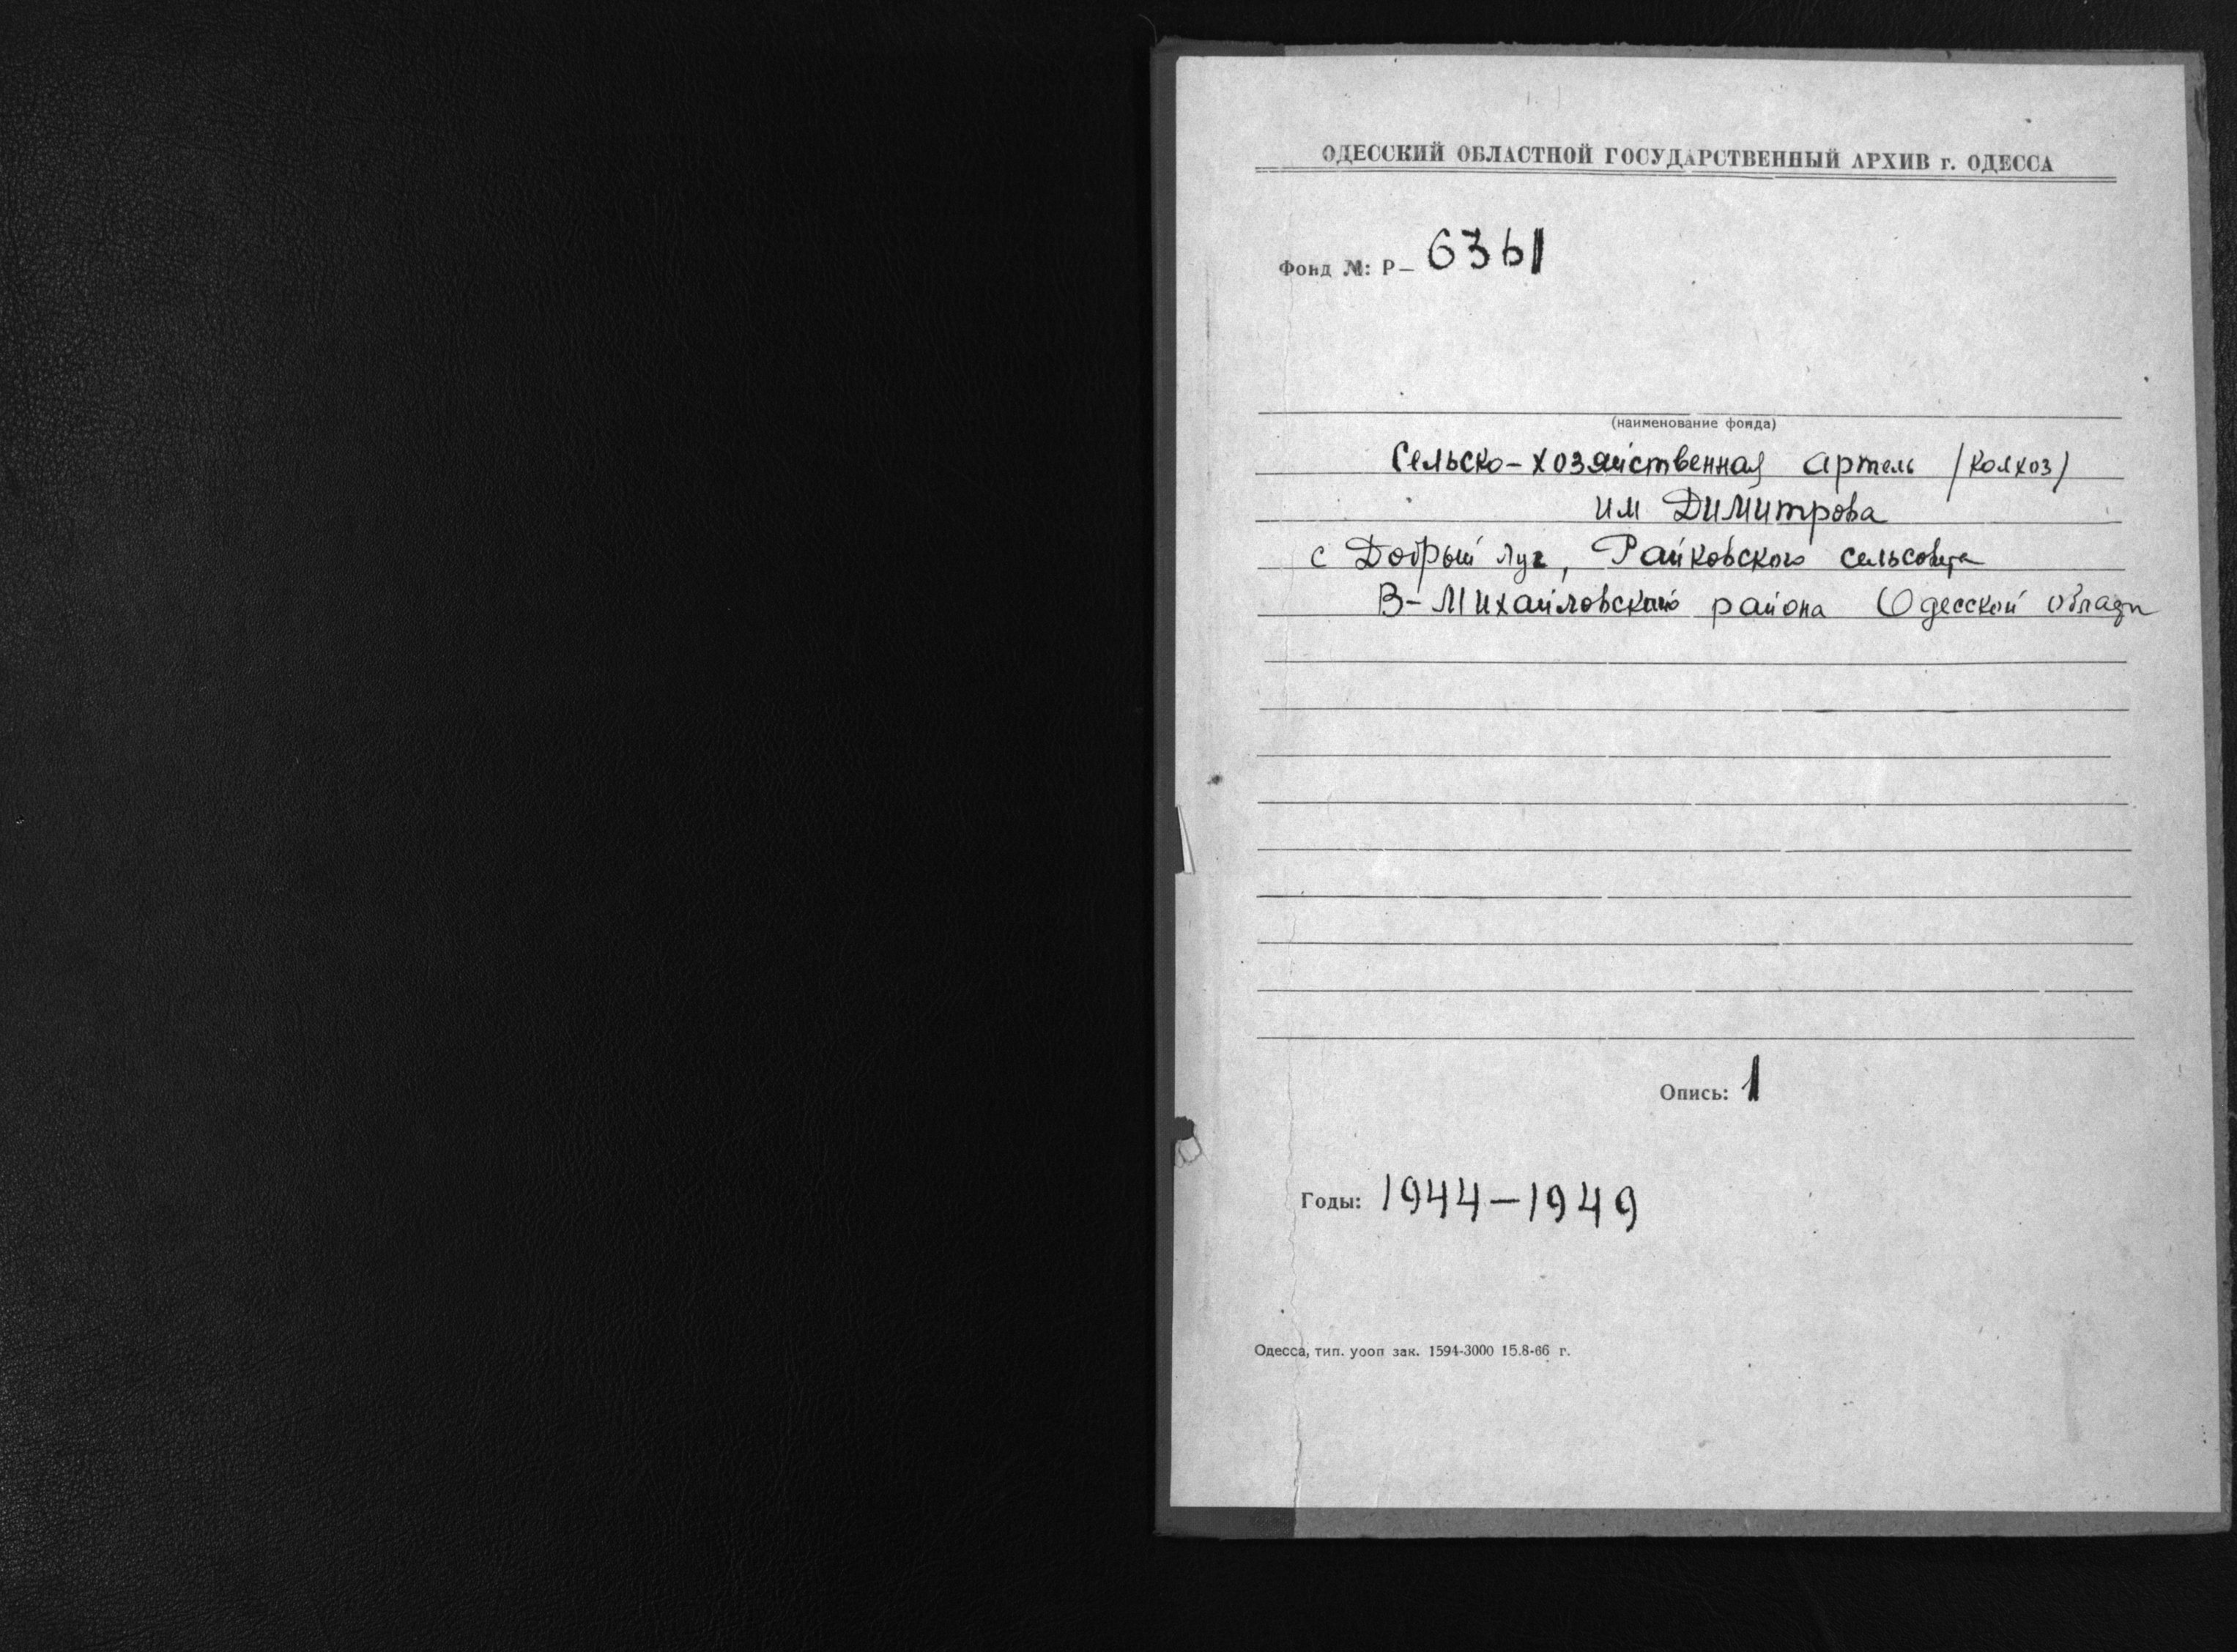 ОДЕССКИЙ ОБЛАСТНОЙ ГОСУДАРСТВЕННЫЙ АРХИВ г. ОДЕССА
Фонд №: Р— 6361
(наименование фонда)
Сельско-хозяйственная артель /колхоз/
им Димитрова
с Добрый луг, Райковского сельсовета
В-Михайловского района Одесской области
Опись: 1
Годы: 1944—1949
Одесса, тип. уооп зак. 1594-3000 15.8-66 г.